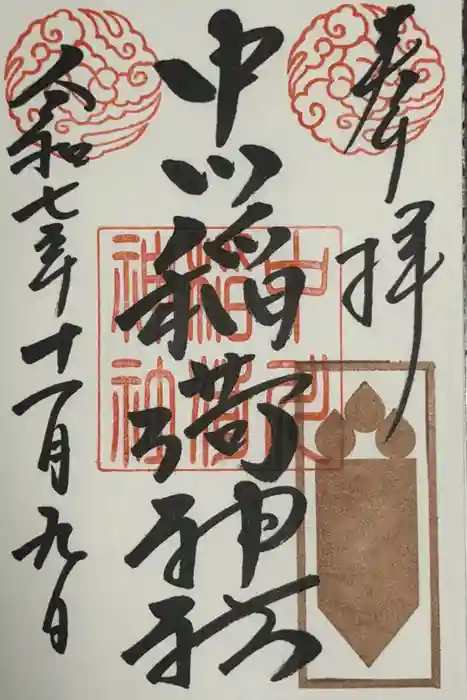 奉拝
中山稲荷神社
令和七年十一月九日